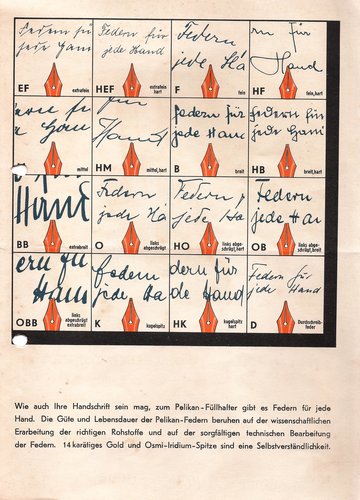 Federn fü
jede Hand
EF
extrafein
Federn für
jede Hand
HEF
extrafein, hart
Federn
jede Ha
F
fein
rn für
Hand
HF
fein, hart
ern fü
e Han
M
mittel
für
Hand
HM
mittel, hart
Federn für
jede Hand
B
breit
Federn für
jede Hand
HB
breit, hart
Hand
BB
extrabreit
Federn
jede Ha
O
links
abgeschrägt
Federn f
jede Ha
HO
links abge-
schrägt, hart
Federn
jede Han
OB
links abge-
schrägt, breit
ern fü
Han
OBB
links
abgeschrägt
extrabreit
Federn
jede Ha
K
kugelspitz
dern für
de Hand
HK
kugelspitz
hart
Federn für
jede Hand
D
Durchschreib-
feder
Wie auch Ihre Handschrift sein mag, zum Pelikan-Füllhalter gibt es Federn für jede
Hand. Die Güte und Lebensdauer der Pelikan-Federn beruhen auf der wissenschaftlichen
Erarbeitung der richtigen Rohstoffe und auf der sorgfältigen technischen Bearbeitung
der Federn. 14 karätiges Gold und Osmi-Iridium-Spitze sind eine Selbstverständlichkeit.